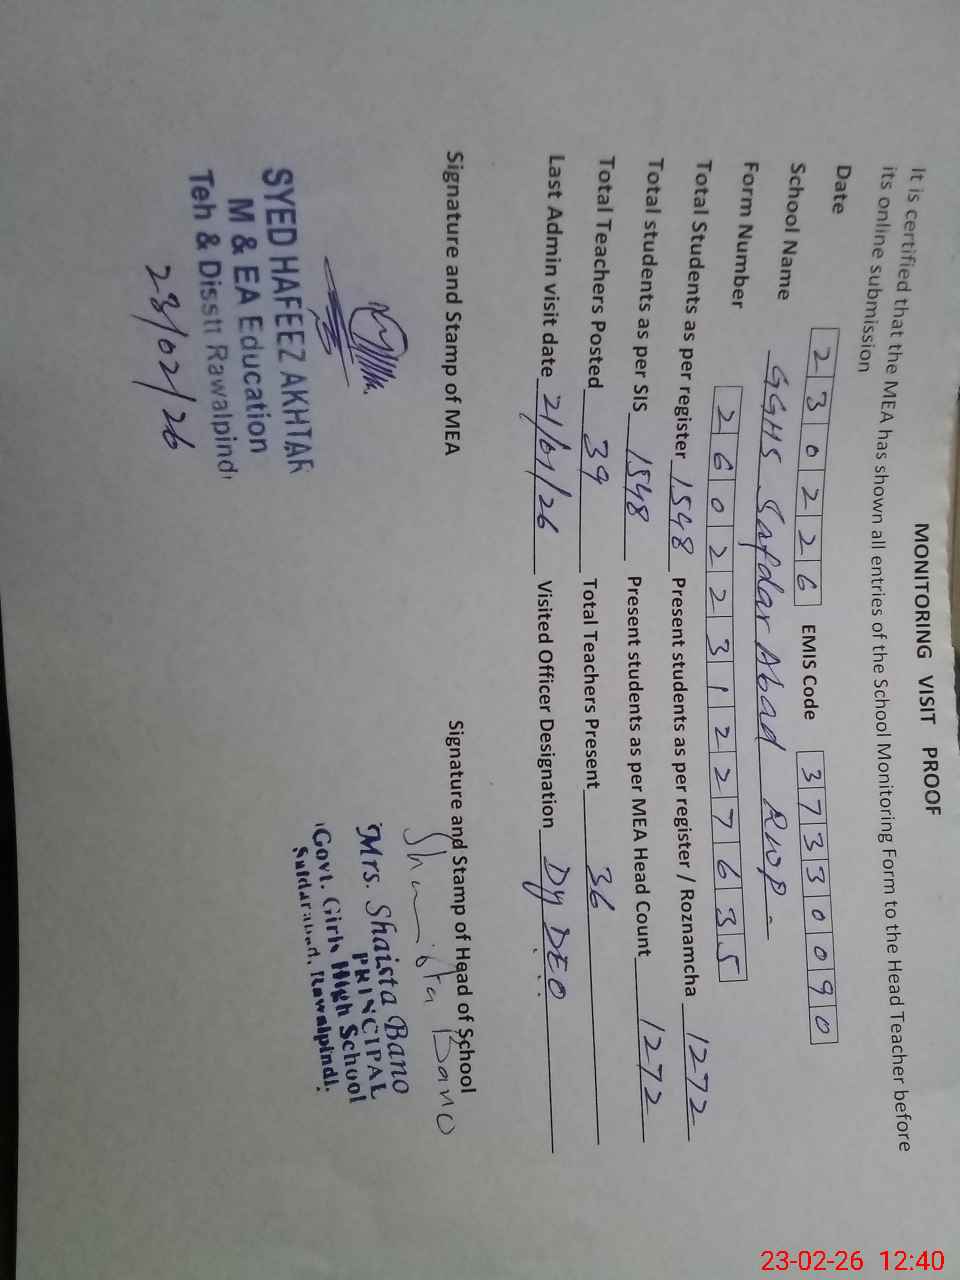 MONITORING VISIT PROOF
It is certified that the MEA has shown all entries of the School Monitoring Form to the Head Teacher before
its online submission
Date 230226 EMIS Code 37330090
School Name GGHS Safdar Abad RWP-
Form Number 2602231227635
Total Students as per register 1548 Present students as per register / Roznamcha 1272
Total students as per SIS 1548 Present students as per MEA Head Count 1272
Total Teachers Posted 39 Total Teachers Present 36
Last Admin visit date 21/01/26 Visited Officer Designation Dy DEO
Signature and Stamp of MEA Signature and Stamp of Head of School
Shaista Bano
SYED HAFEEZ AKHTAR
M & EA Education
Teh & Disstt Rawalpindi
23/02/26
Mrs. Shaista Bano
PRINCIPAL
Govt. Girls High School
Safdarabad, Rawalpindi.
23-02-26 12:40